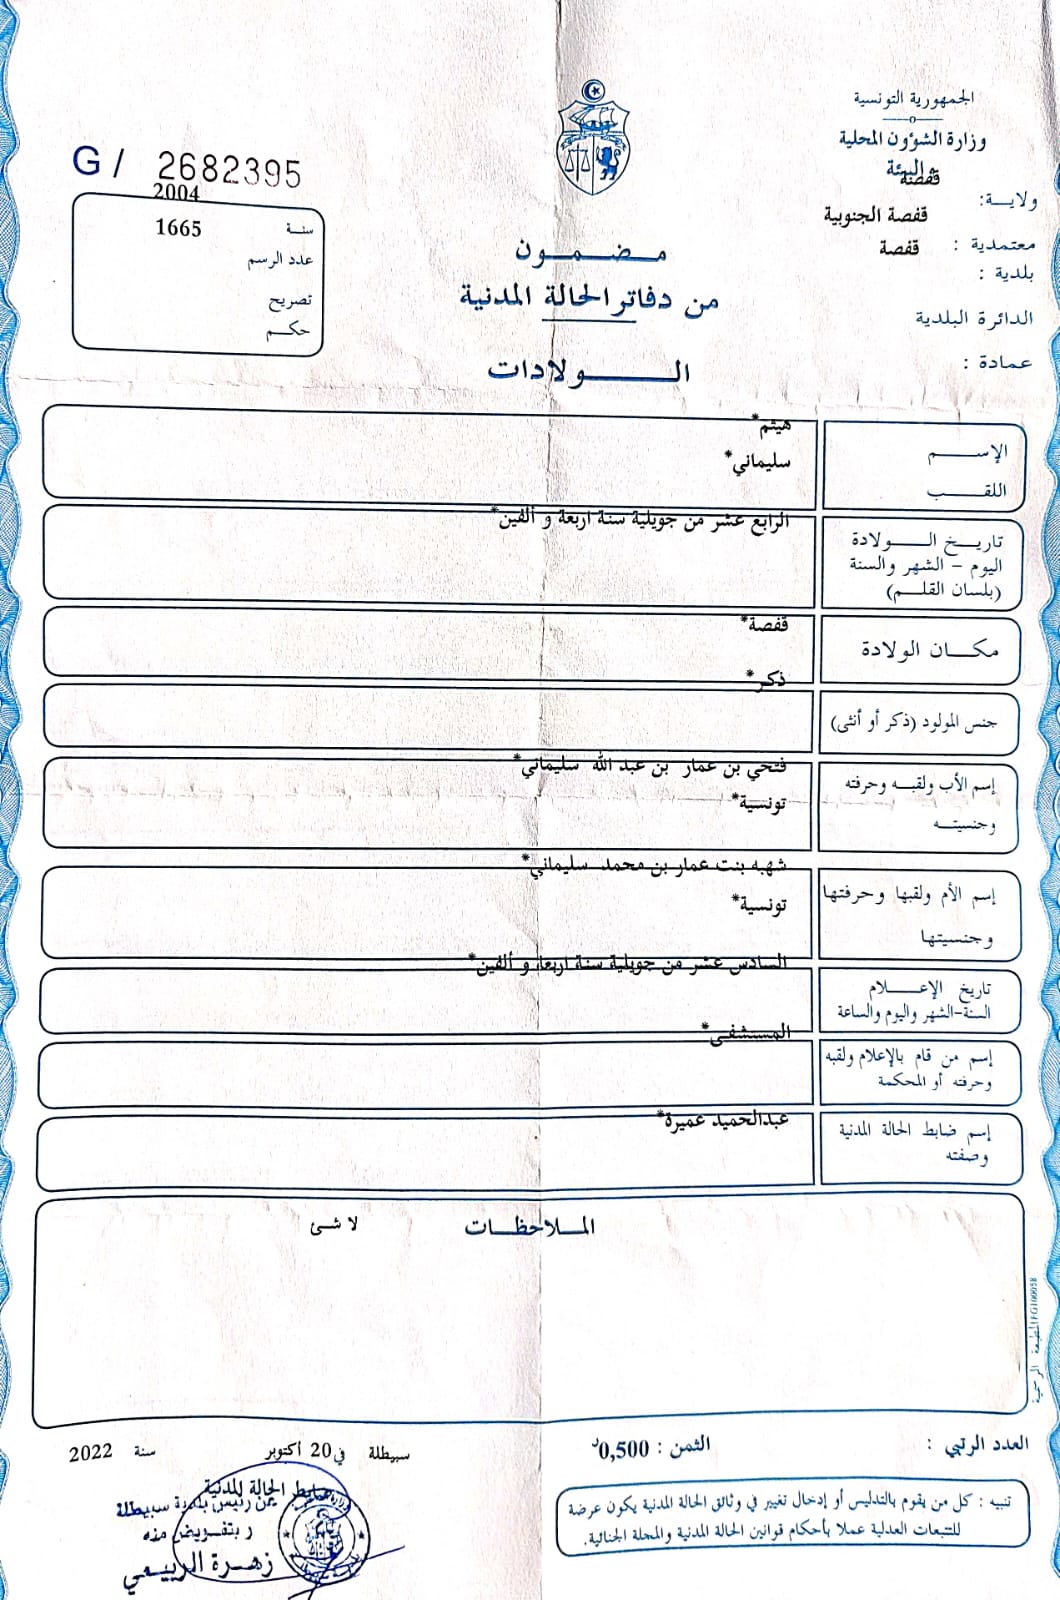 الجمهورية التونسية
وزارة الشؤون المحلية
والبيئة
ولاية: قفصة
معتمدية : قفصة الجنوبية
بلدية : قفصة
الدائرة البلدية
عمادة :
G / 2682395
2004
سنة 1665
عدد الرسم
تصريح
حكم
مضمون
من دفاتر الحالة المدنية
الولادات
الإسم هيثم*
اللقب سليماني*
تاريخ الولادة الرابع عشر من جويلية سنة اربعة و ألفين*
اليوم - الشهر والسنة
(بلسان القلم)
مكان الولادة قفصة*
جنس المولود (ذكر أو أنثى) ذكر*
إسم الأب ولقبه وحرفته فتحي بن عمار بن عبد الله سليماني*
وجنسيته تونسية*
إسم الأم ولقبها وحرفتها شهبه بنت عمار بن محمد سليماني*
وجنسيتها تونسية*
تاريخ الإعلام السادس عشر من جويلية سنة اربعة و ألفين*
السنة-الشهر واليوم والساعة
إسم من قام بالإعلام ولقبه المستشفى*
وحرفته أو المحكمة
إسم ضابط الحالة المدنية عبدالحميد عميرة*
وصفته
الملاحظات لا شئ
العدد الرتبي :
الثمن : 0,500د
سبيطلة في 20 أكتوبر سنة 2022
تنبيه : كل من يقوم بالتدليس أو إدخال تغيير في وثائق الحالة المدنية يكون عرضة
للتتبعات العدلية عملا بأحكام قوانين الحالة المدنية والمجلة الجنائية.
ضابط الحالة المدنية
عن رئيس بلدية سبيطلة
و بتفويض منه
زهرة الربيعي